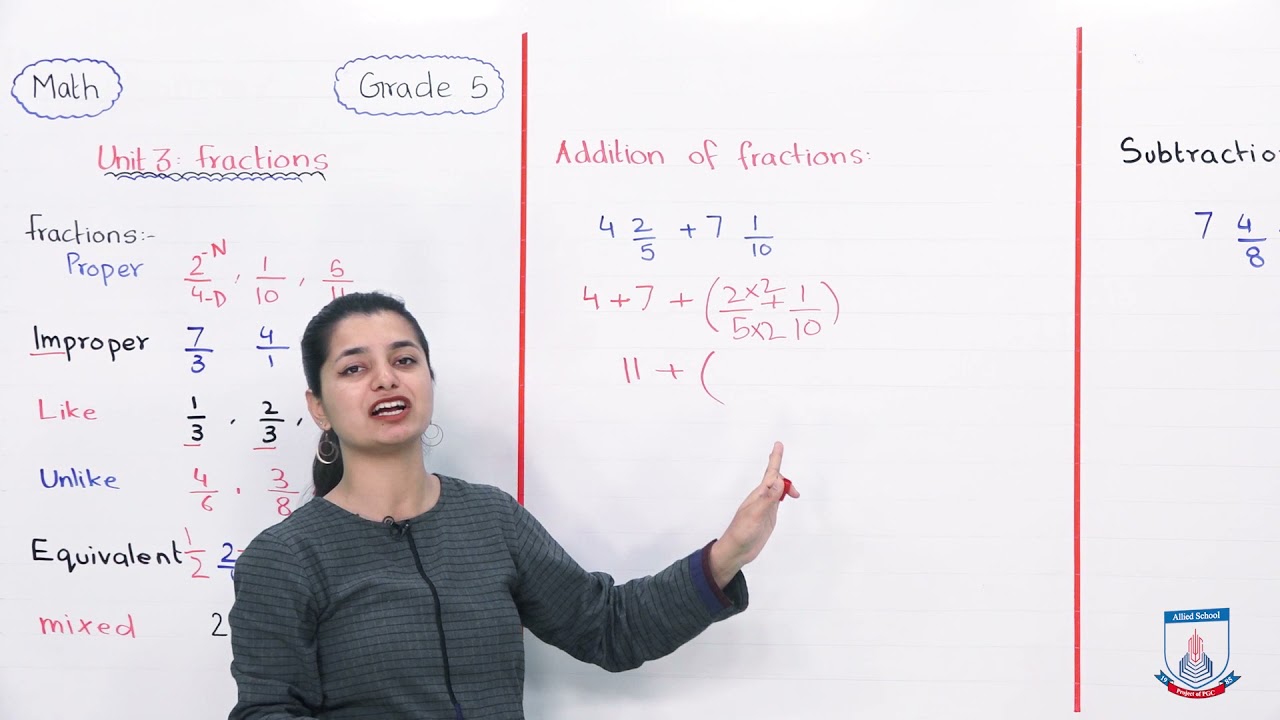 Math
Grade 5
Unit 3: fractions
fractions:-
Proper 2/4 -N -D , 1/10 , 5/11
Improper 7/3 4/1
Like 1/3 , 2/3 ,
Unlike 4/6 , 3/8
Equivalent 1/2 2
mixed 2
Addition of fractions:
4 2/5 + 7 1/10
4 + 7 + (2×2/5×2 + 1/10)
11 + (
Subtractio
7 4/8
Allied School
19 85
Project of PGC